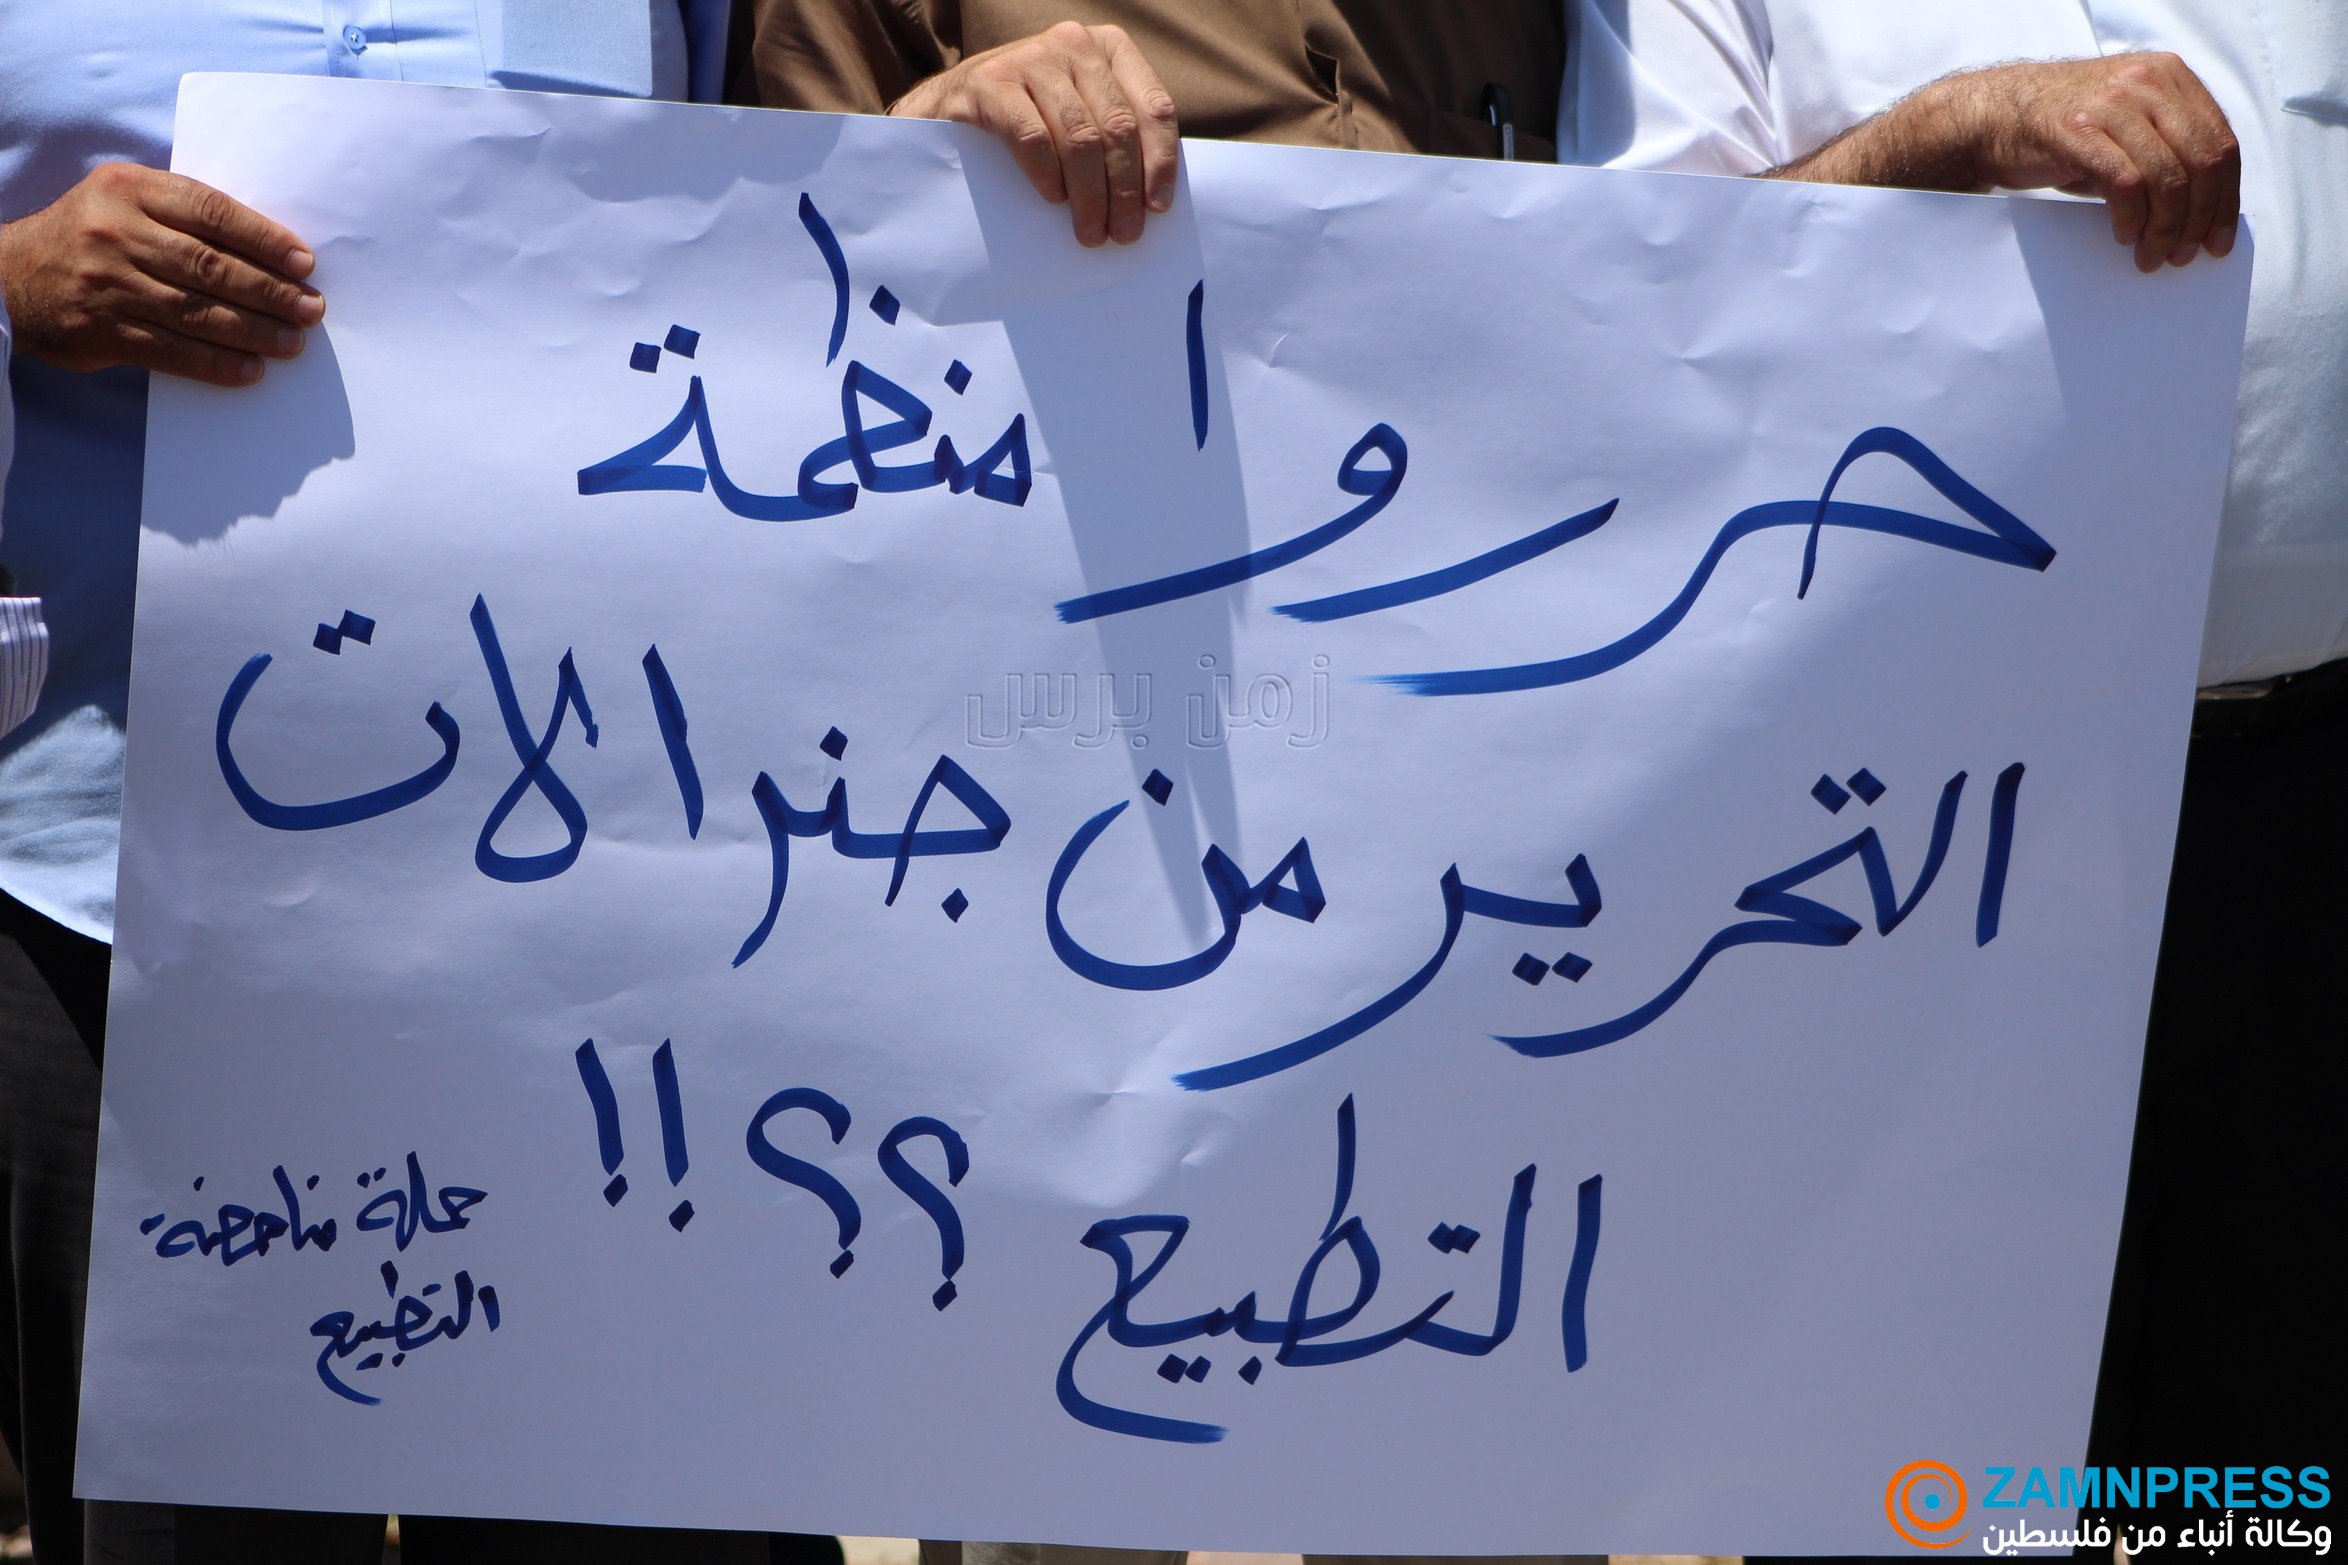 حرروا منظمة
التحرير من جنرالات
التطبيع ؟؟!!
حملة مناهضة
التطبيع
زمن برس
ZAMNPRESS
وكالة أنباء من فلسطين